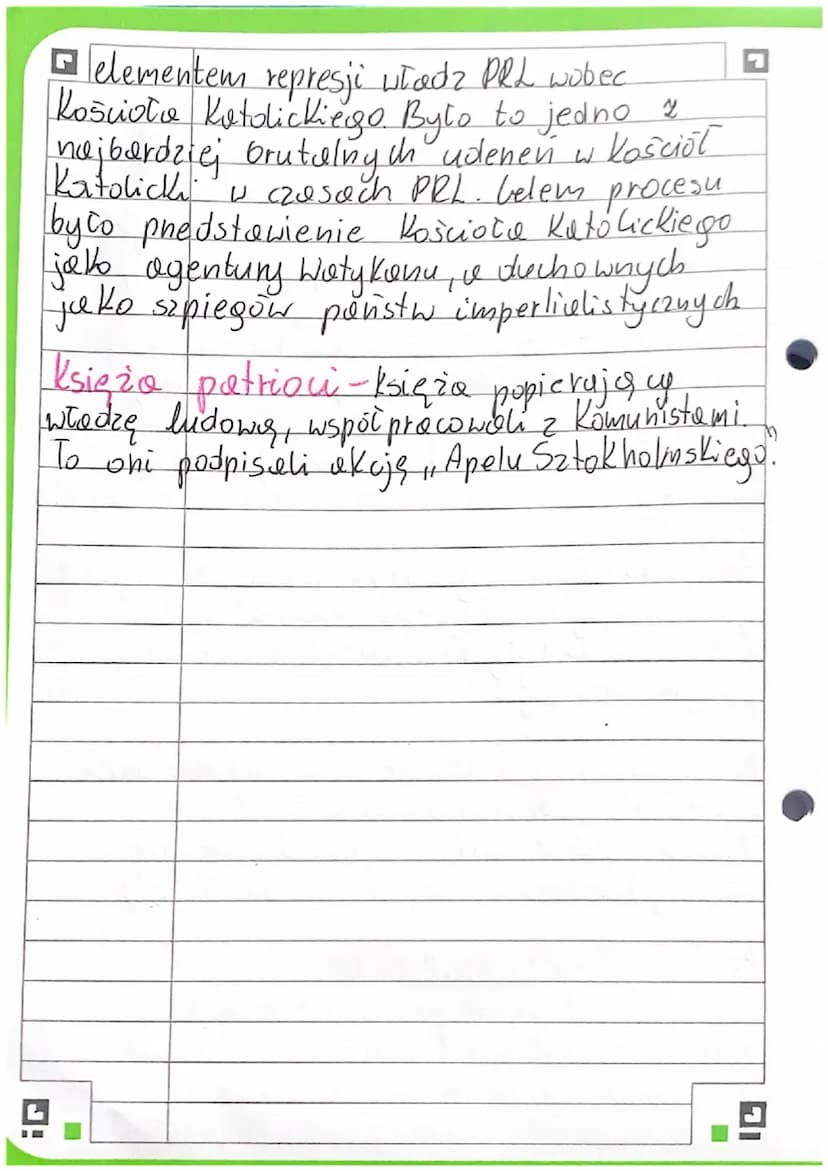 elementem represji władz PRL wobec
Kościoła Katolickiego. Było to jedno z
najbardziej brutalnych uderzeń w Kościół
Katolicki w czasach PRL. Celem procesu
było przedstawienie Kościoła Katolickiego
jako agentury Watykanu, a duchownych
jako szpiegów państw imperlialistycznych
Księża patrioci - księża popierający
władzę ludową, współpracowali z Komunistami.
To oni podpisali akcję „Apelu Sztokholmskiego".